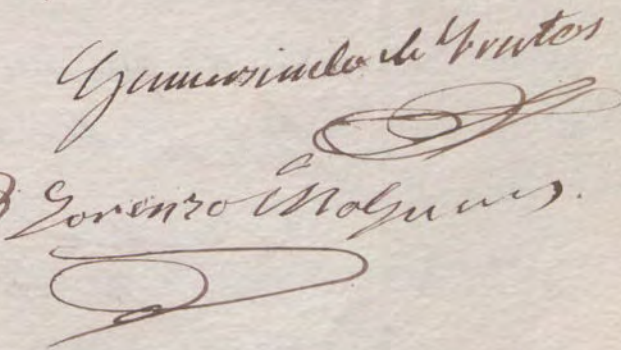 Gumersindo de Frutos
Lorenzo Nogueras.